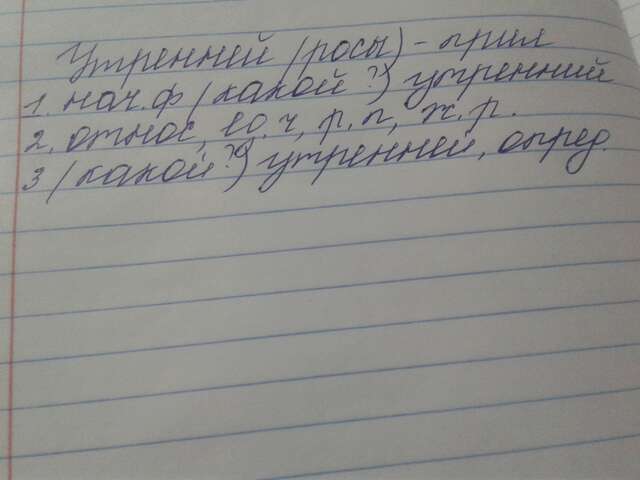 Утренней (росы) - прил
1. нач.ф (какой?) утренний
2. относ, ед.ч, р.п, ж.р.
3 (какой?) утренней, опред.